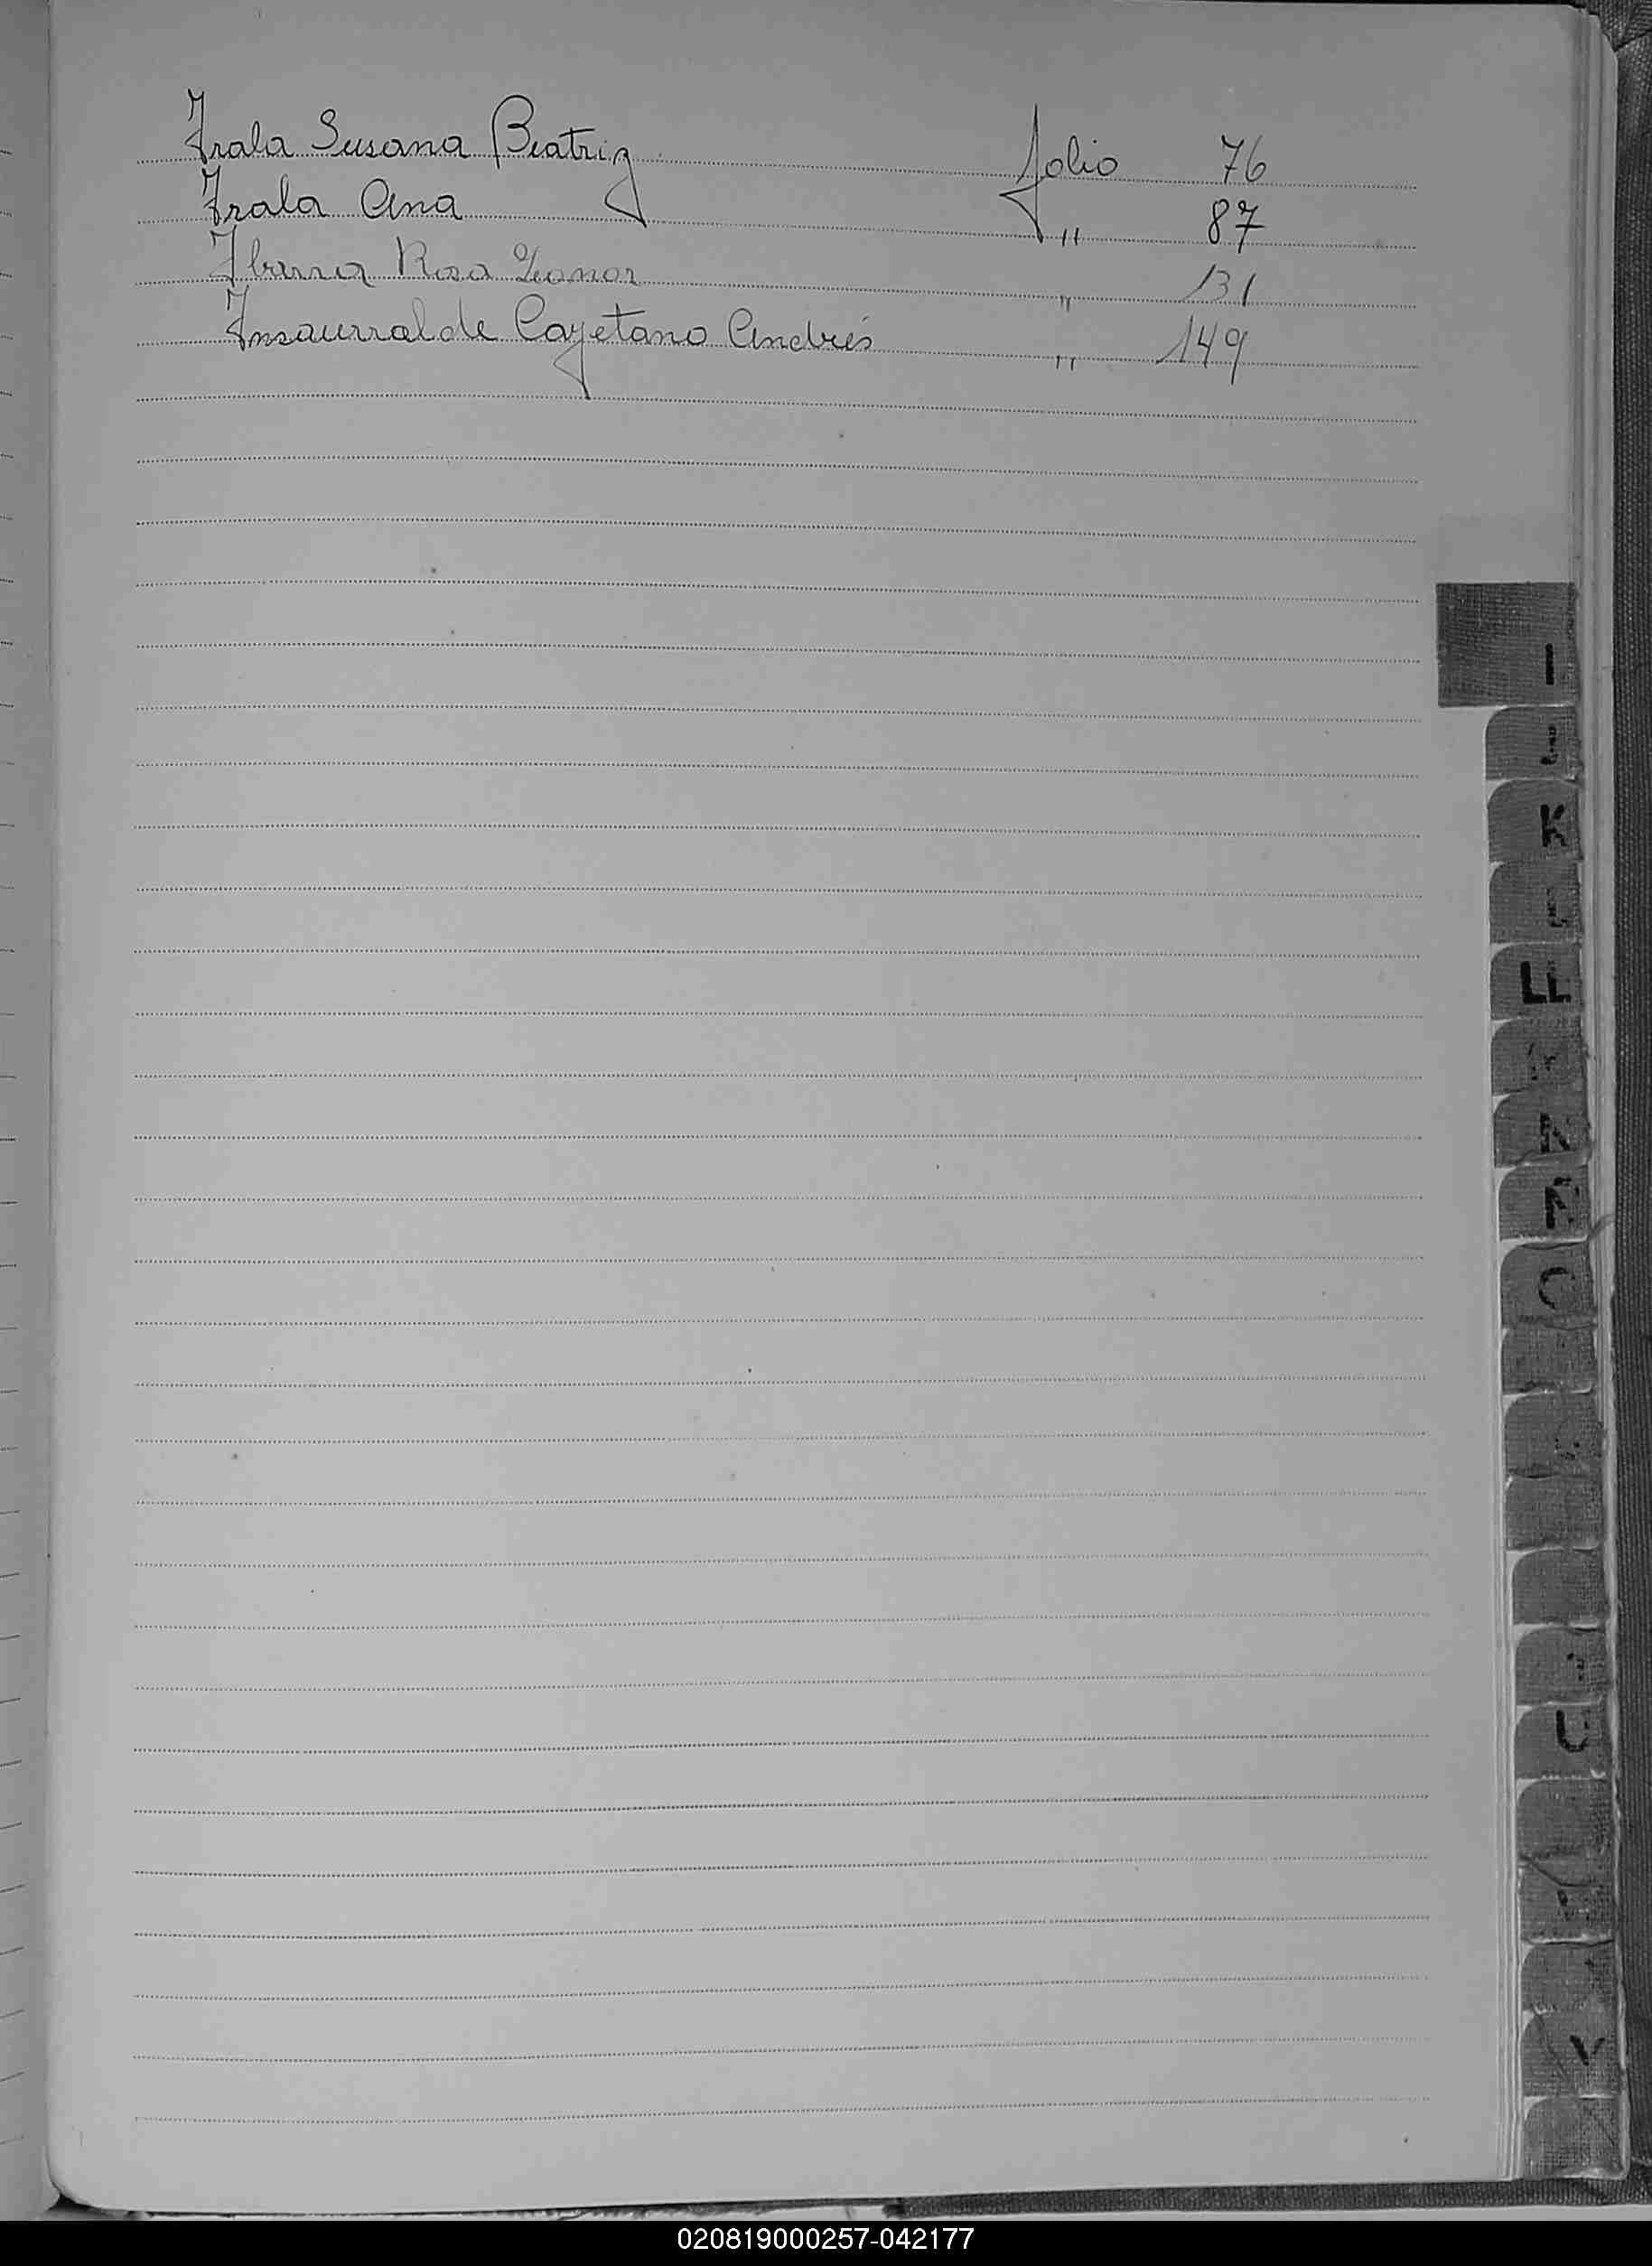 Irala Susana Beatriz folio 76
Irala Ana " 87
Ibarra Rosa Leonor " 131
Insaurralde Cayetano Andrés " 149
I
J
K
LL
N
Ñ
O
U
Y
020819000257-042177